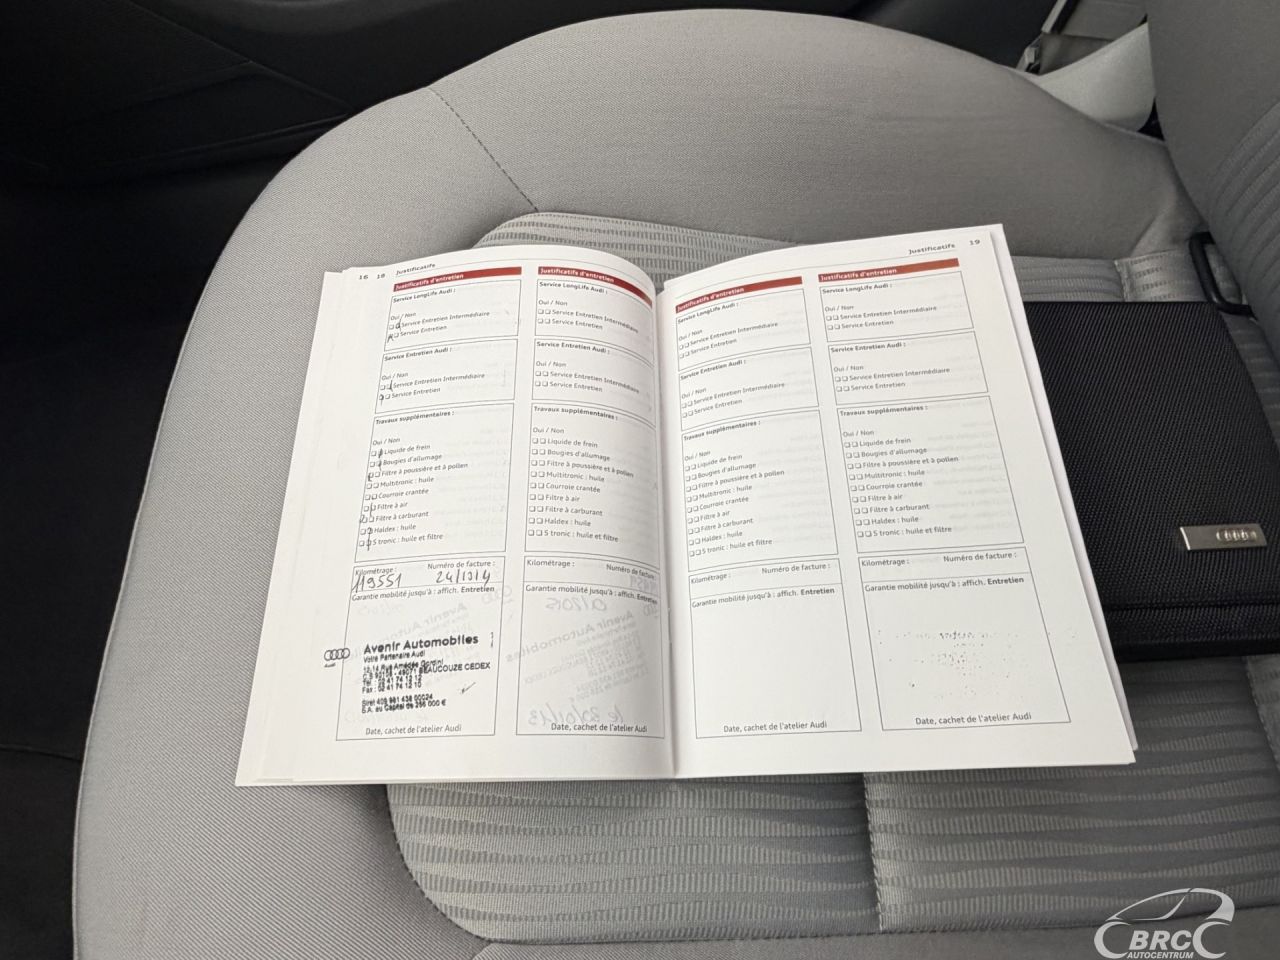 16 18 Justificatifs
Justificatifs d'entretien
Service LongLife Audi :
Oui / Non
Service Entretien Intermédiaire
Service Entretien
Service Entretien Audi :
Oui / Non
Service Entretien Intermédiaire
Service Entretien
Travaux supplémentaires :
Oui / Non
Liquide de frein
Bougies d'allumage
Filtre à poussière et à pollen
Multitronic : huile
Courroie crantée
Filtre à air
Filtre à carburant
Haldex : huile
S tronic : huile et filtre
Kilométrage : Numéro de facture :
119551
Garantie mobilité jusqu'à : affich. Entretien
Avenir Automobiles
Votre Partenaire Audi
12,14 Rue Amédée Gordini
49071 BEAUCOUZE CEDEX
Tél : 02 41 74 12 12
Fax : 02 41 74 12 10
S.A. au Capital de 256 000 €
Date, cachet de l'atelier Audi
Justificatifs d'entretien
Service LongLife Audi :
Oui / Non
Service Entretien Intermédiaire
Service Entretien
Service Entretien Audi :
Oui / Non
Service Entretien Intermédiaire
Service Entretien
Travaux supplémentaires :
Oui / Non
Liquide de frein
Bougies d'allumage
Filtre à poussière et à pollen
Multitronic : huile
Courroie crantée
Filtre à air
Filtre à carburant
Haldex : huile
S tronic : huile et filtre
Kilométrage : Numéro de facture :
Garantie mobilité jusqu'à : affich. Entretien
Date, cachet de l'atelier Audi
Justificatifs 19
Justificatifs d'entretien
Service LongLife Audi :
Oui / Non
Service Entretien Intermédiaire
Service Entretien
Service Entretien Audi :
Oui / Non
Service Entretien Intermédiaire
Service Entretien
Travaux supplémentaires :
Oui / Non
Liquide de frein
Bougies d'allumage
Filtre à poussière et à pollen
Multitronic : huile
Courroie crantée
Filtre à air
Filtre à carburant
Haldex : huile
S tronic : huile et filtre
Kilométrage : Numéro de facture :
Garantie mobilité jusqu'à : affich. Entretien
Date, cachet de l'atelier Audi
Justificatifs d'entretien
Service LongLife Audi :
Oui / Non
Service Entretien Intermédiaire
Service Entretien
Service Entretien Audi :
Oui / Non
Service Entretien Intermédiaire
Service Entretien
Travaux supplémentaires :
Oui / Non
Liquide de frein
Bougies d'allumage
Filtre à poussière et à pollen
Multitronic : huile
Courroie crantée
Filtre à air
Filtre à carburant
Haldex : huile
S tronic : huile et filtre
Kilométrage : Numéro de facture :
Garantie mobilité jusqu'à : affich. Entretien
Date, cachet de l'atelier Audi
BRC
AUTOCENTRUM